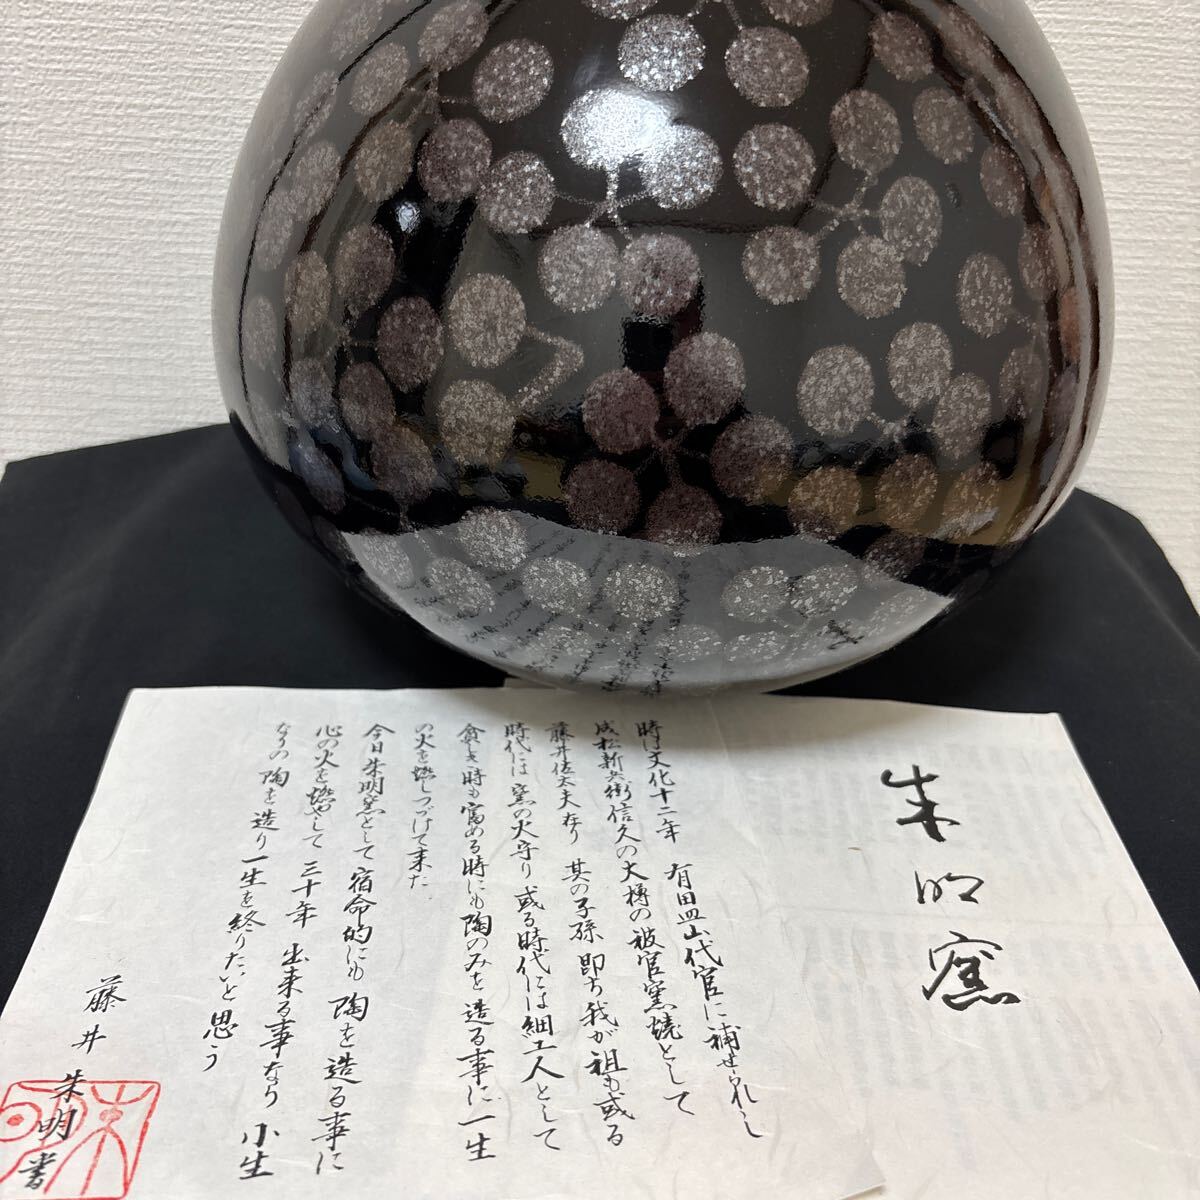 朱明窯
時は文化十二年 有田皿山代官に補せられし
成松新兵衛信久の大樽の被官窯焼として
藤井佐太夫なり 其の子孫 即ち我が祖も或る
時代には窯の火守り 或る時代には細工人として
貧しき時も富める時にも陶のみを造る事に一生
の火を燃しつづけて来た
今日朱明窯として宿命的にも陶を造る事に
心の火を燃やして三十年 出来る事なら小生
なりの陶を造り一生を終りたいと思う
藤井朱明書